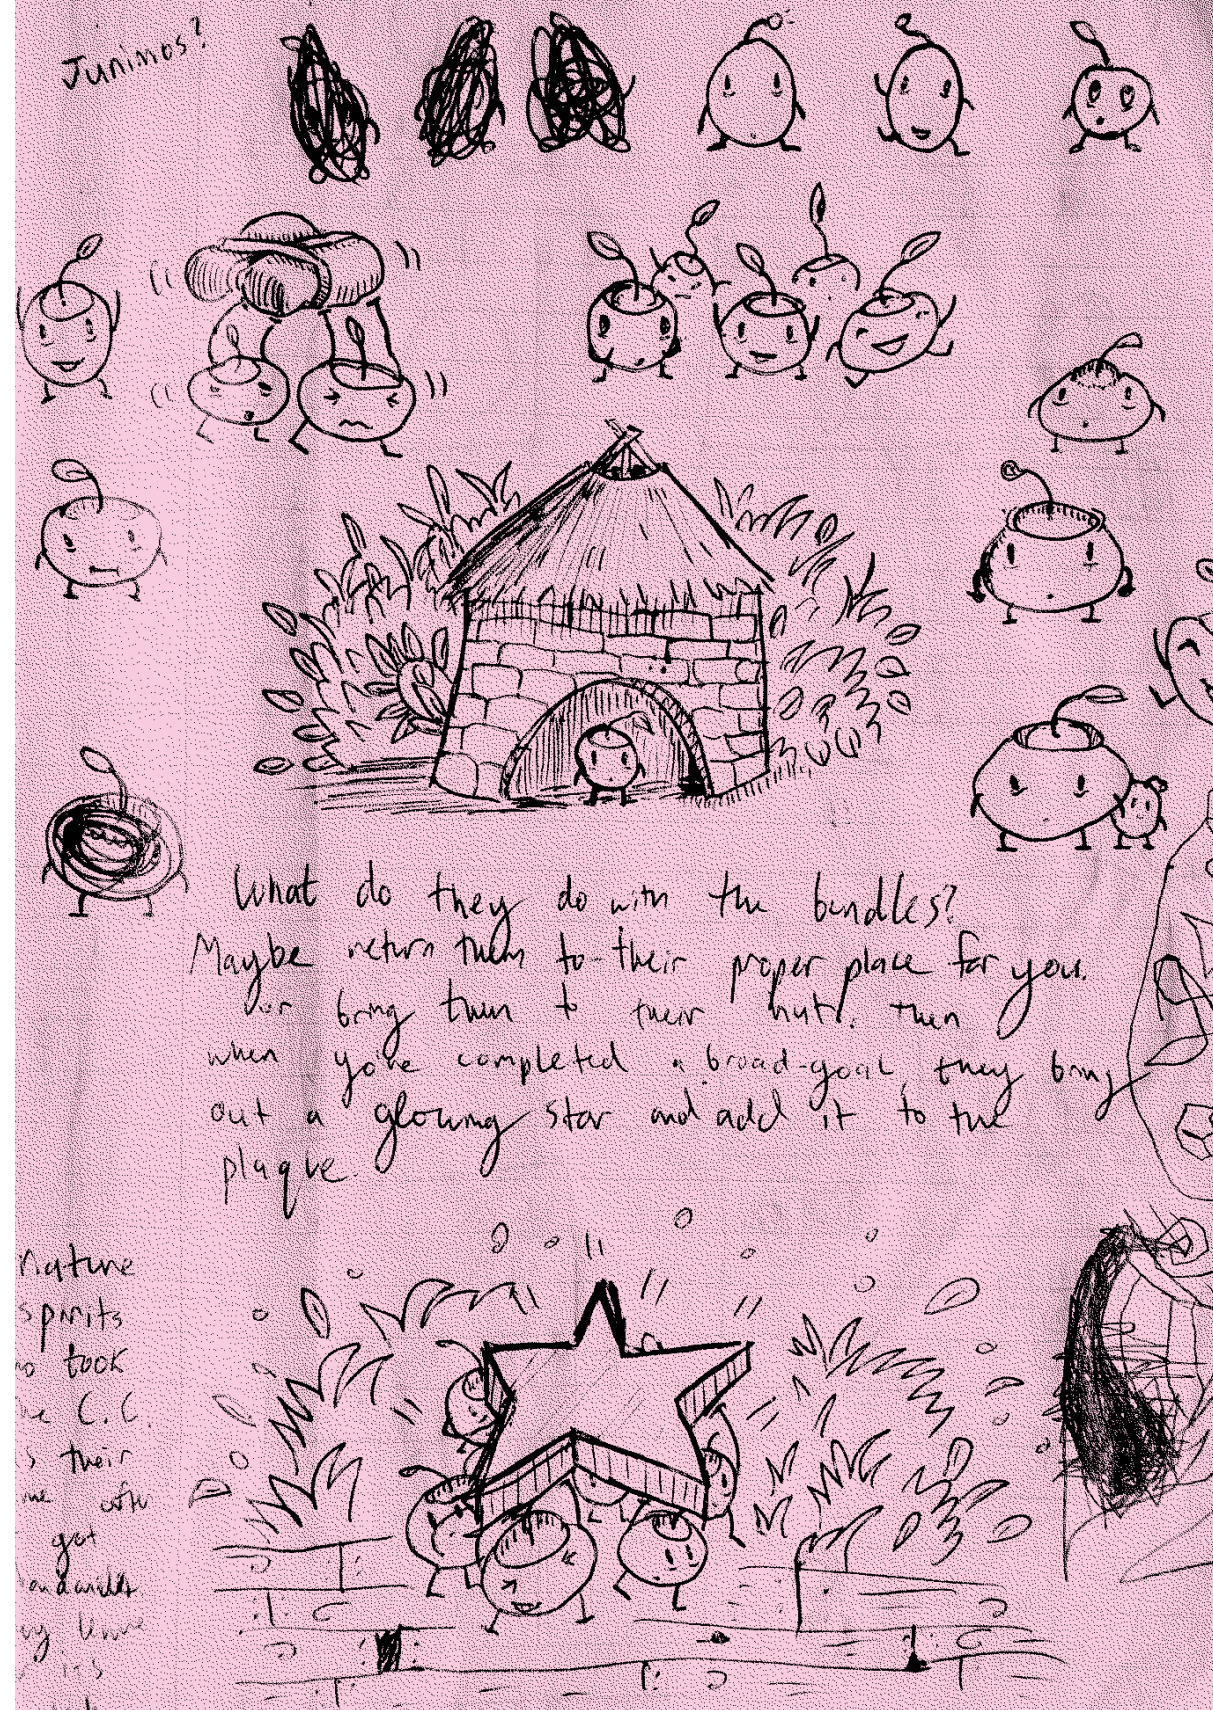 Junimos?
What do they do with the bundles?
Maybe return them to their proper place for you.
or bring them to their hut. Then
when you've completed a broad-goal, they bring
out a glowing star and add it to the
plaque.
nature
spirits
took
C.C.
their
got